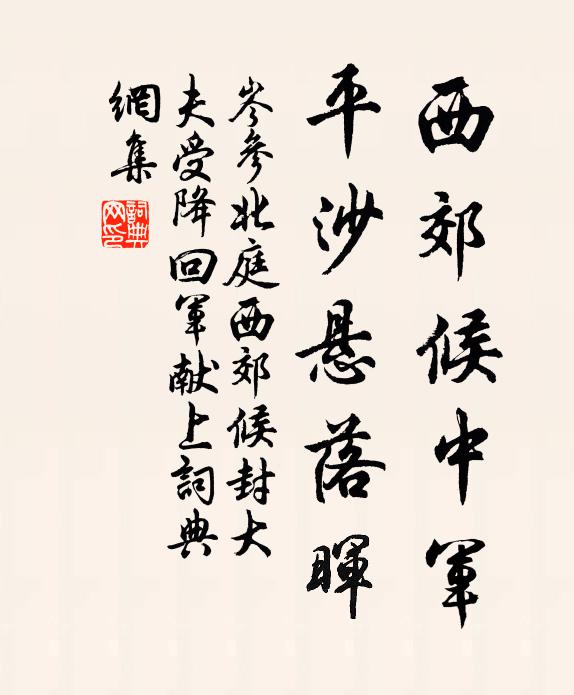 西郊候中軍
平沙懸落暉
岑參北庭西郊候封大
夫受降回軍献上詞典
網集
詞典網印